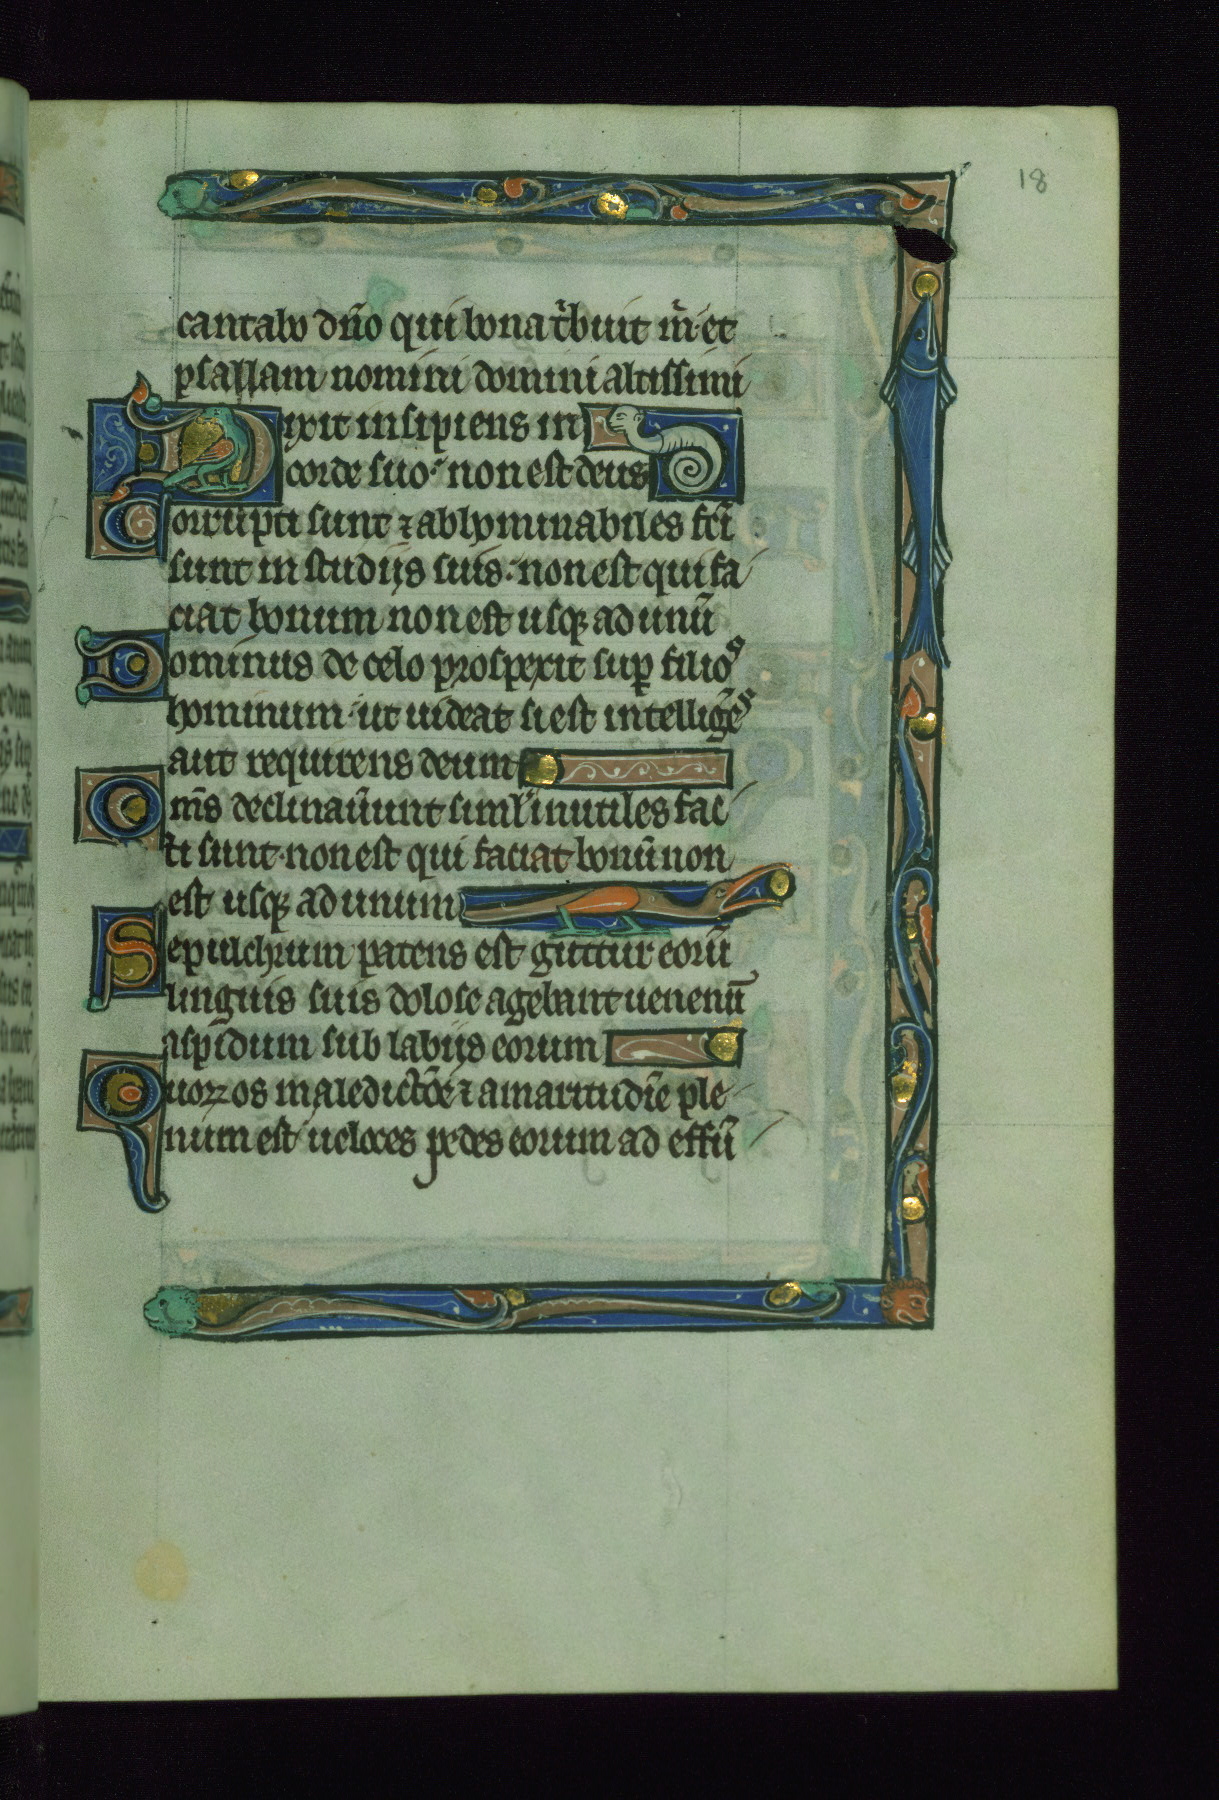 18
cantabo dño qui bona t̾buit m̾ et
psallam nomini domini altissimi
Dixit insipiens in
corde suo: non est deus
Corrupti sunt ⁊ abhominabiles fc̄i
sunt in studijs suis: non est qui fa
ciat bonum non est usq; ad unū
Dominus de celo prospexit sup̱ filios
hominum: ut uideat si est intelligēs
aut requirens deum
Om̄s declinau̾unt siml̾ inutiles fac
ti sunt. non est qui faciat bonū non
est usq; ad unum
Sepulchrum patens est guttur eorū
linguis suis dolose agebant uenenū
aspidum sub labijs eorum
Quoꝝ os maledictōe ⁊ amaritudīe ple
num est ueloces pedes eorum ad effū